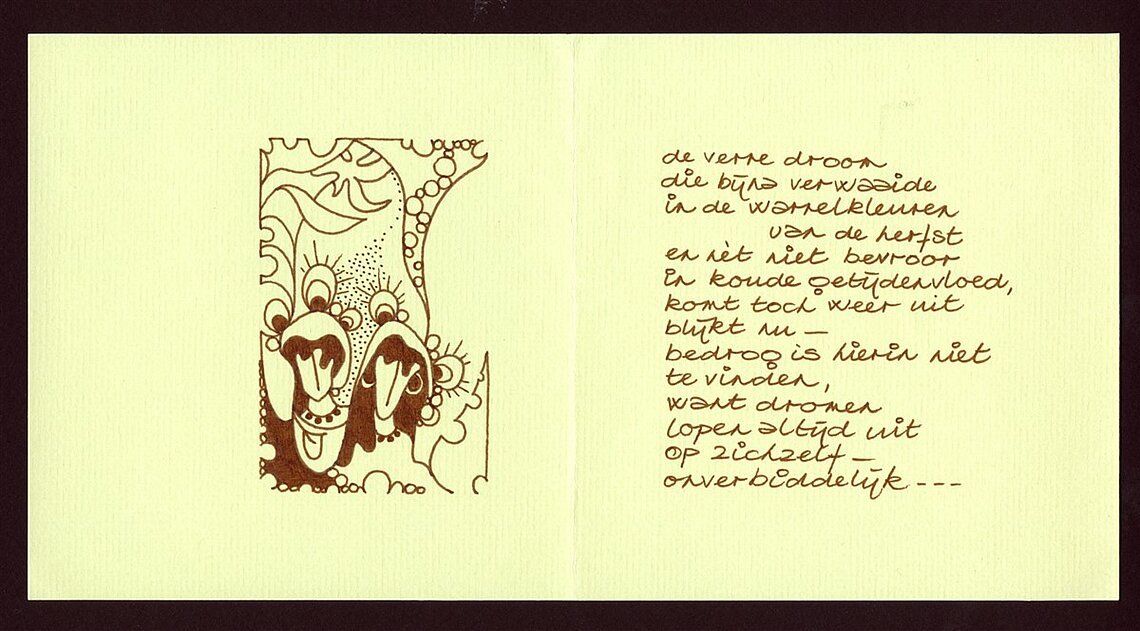 de verre droom
die bijna verwaaide
in de warrelkleuren
van de herfst
en nèt niet bevroor
in koude getijdenvloed,
komt toch weer uit
blijkt nu —
bedrog is hierin niet
te vinden,
want dromen
lopen altijd uit
op zichzelf —
onverbiddelijk ---